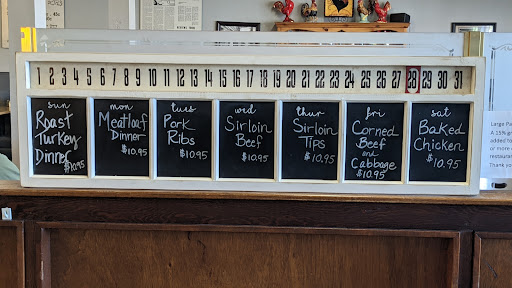 1 2 3 4 5 6 7 8 9 10 11 12 13 14 15 16 17 18 19 20 21 22 23 24 25 26 27 28 29 30 31
sun
Roast
Turkey
Dinner
$10.95
mon
Meatloaf
Dinner
$10.95
tues
Pork
Ribs
$10.95
wed
Sirloin
Beef
$10.95
thur
Sirloin
Tips
$10.95
fri
Corned
Beef
and
Cabbage
$10.95
sat
Baked
Chicken
$10.95
Large Pa
A 15% gr
added to
or more
restaura
Thank yo